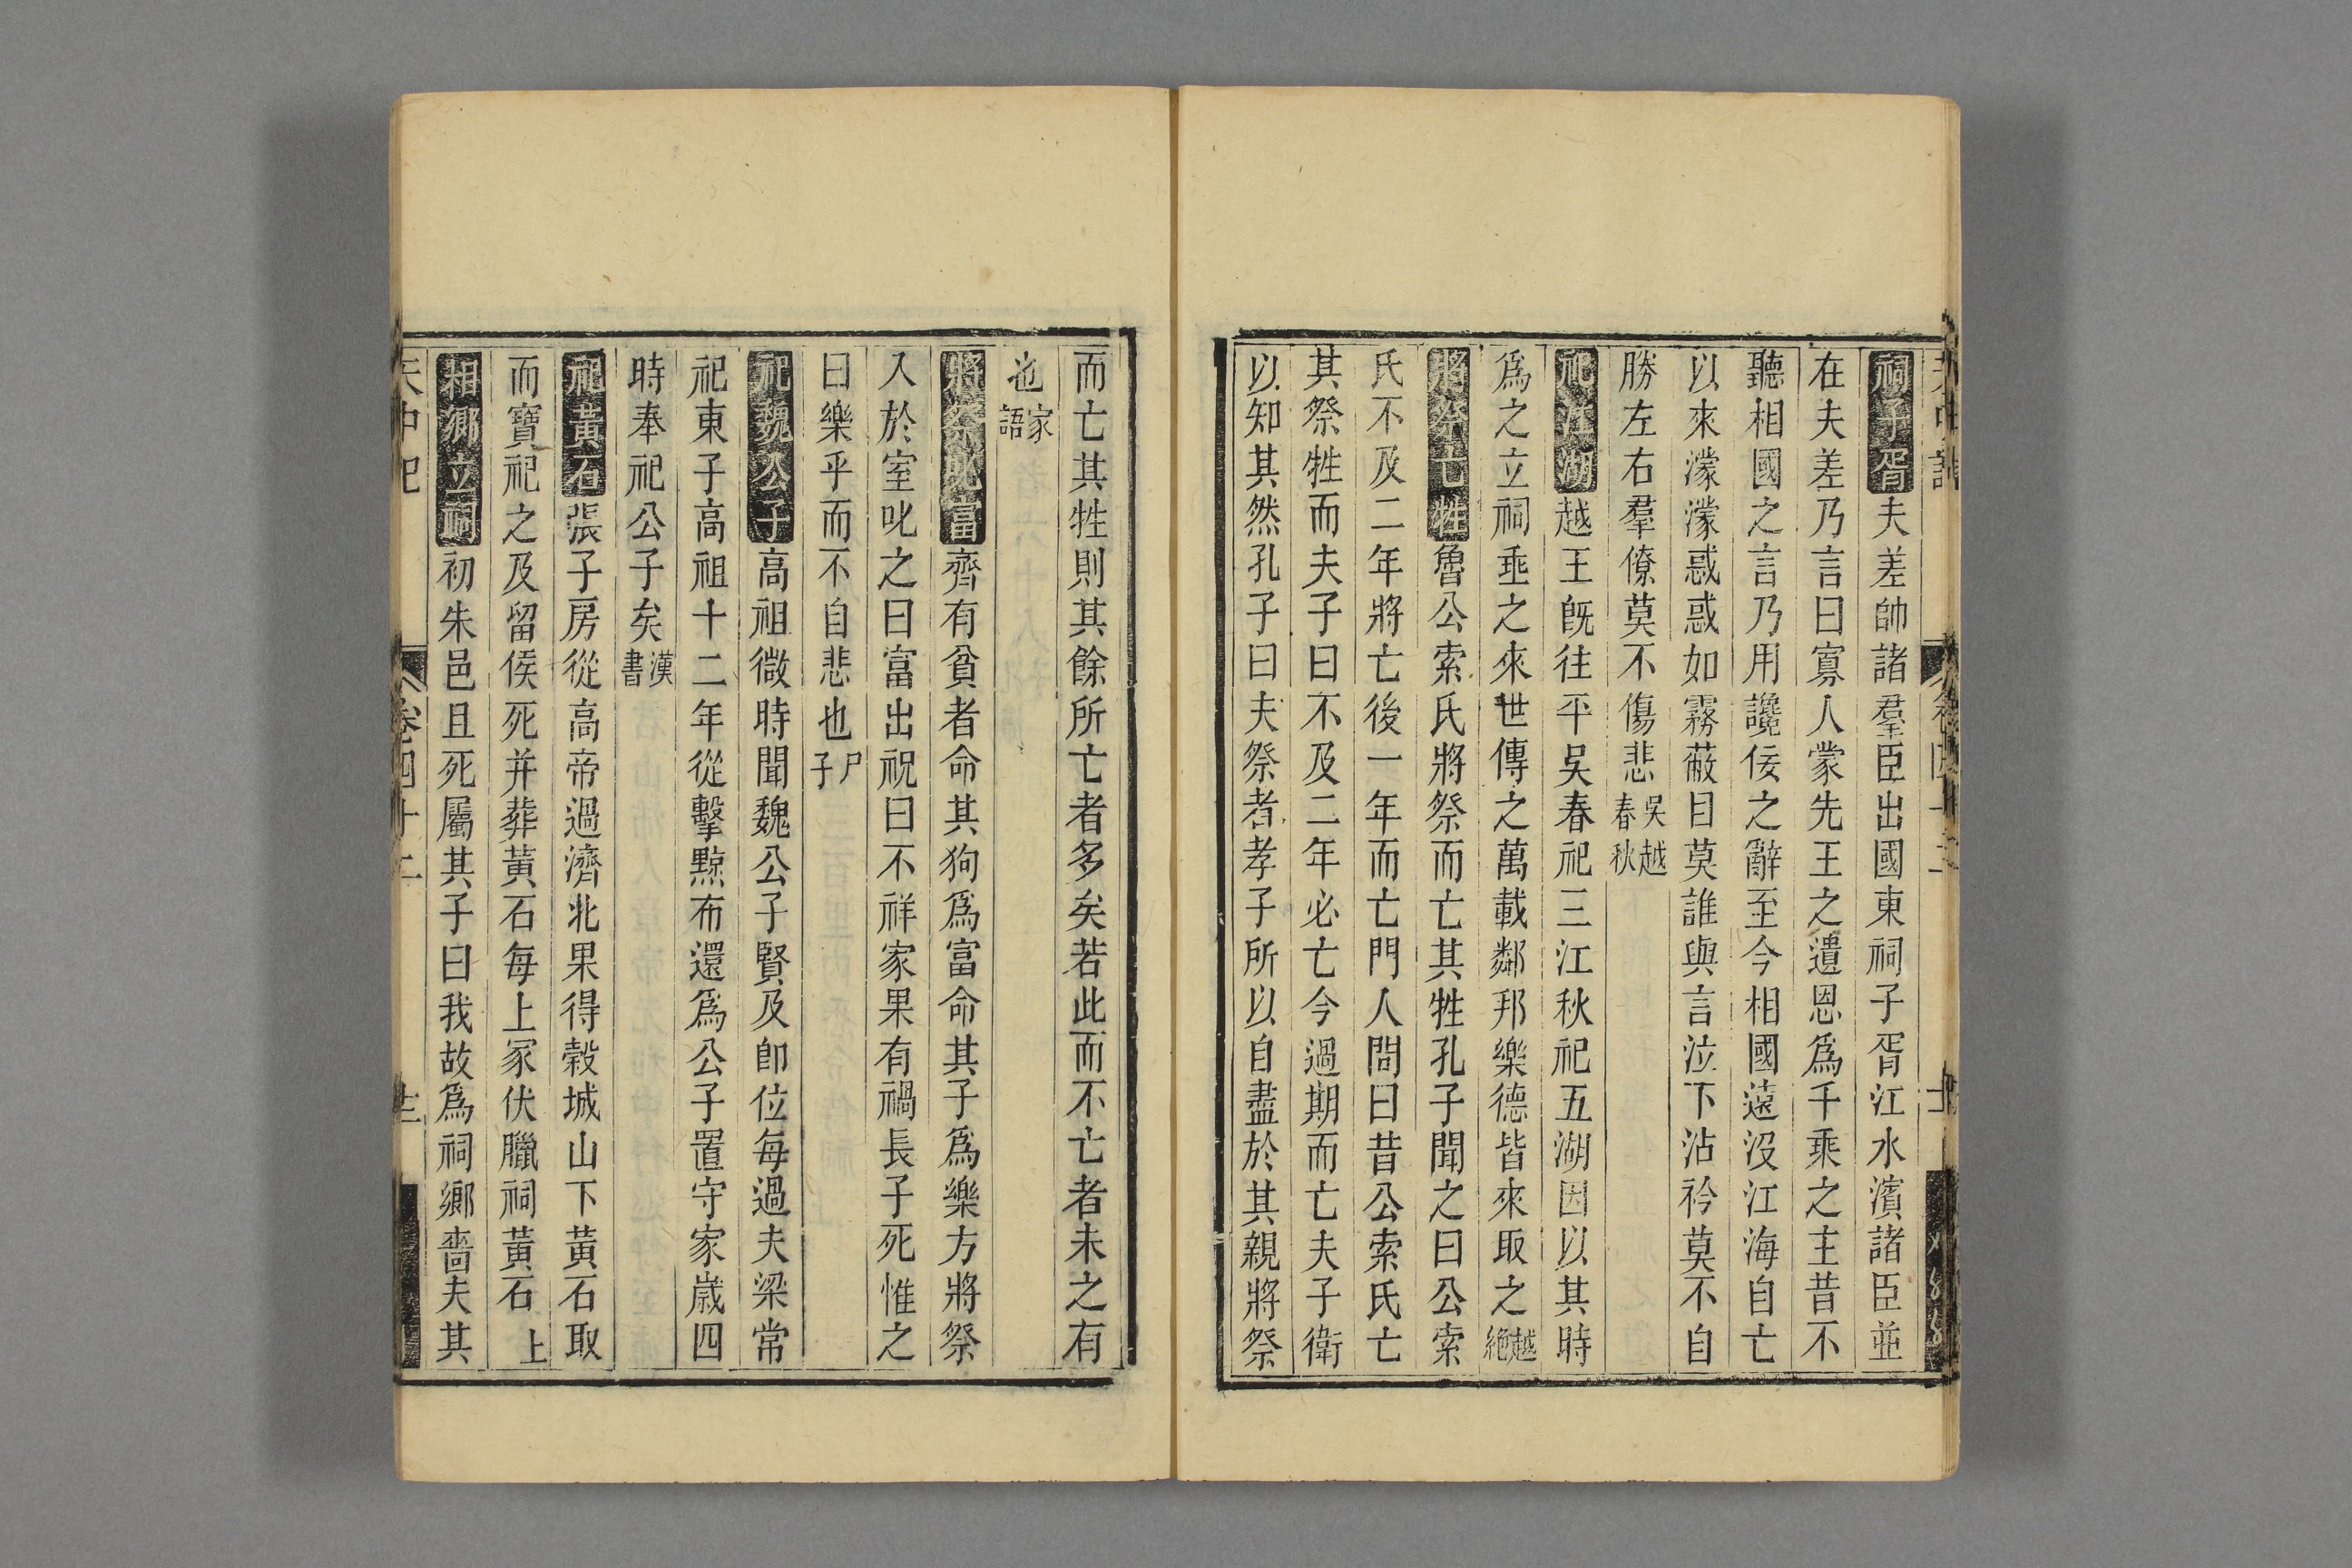 祠子胥夫差帥諸羣臣出國東祠子胥江水濱諸臣並
在夫差乃言曰寡人蒙先王之遺恩爲千乘之主昔不
聽相國之言乃用讒佞之辭至今相國遠沒江海自亡
以來濛濛惑惑如霧蔽日莫誰與言泣下沾衿莫不自
勝左右羣僚莫不傷悲吳越春秋
祀江湖越王旣往平吳春祀三江秋祀五湖因以其時
爲之立祠垂之來世傳之萬載鄰邦樂德皆來取之越絕
將祭亡牲魯公索氏將祭而亡其牲孔子聞之曰公索
氏不及二年將亡後一年而亡門人問曰昔公索氏亡
其祭牲而夫子曰不及二年必亡今過期而亡夫子衛
以知其然孔子曰夫祭者孝子所以自盡於其親將祭
而亡其牲則其餘所亡者多矣若此而不亡者未之有
也家語
將祭叱富齊有貧者命其狗爲富命其子爲樂方將祭
入於室叱之曰富出祝曰不祥家果有禍長子死惟之
曰樂乎而不自悲也尸子
祀魏公子高祖微時聞魏公子賢及卽位每過夫梁常
祀東子高祖十二年從擊黥布還爲公子置守家歲四
時奉祀公子矣漢書
祀黃石張子房從高帝過濟北果得榖城山下黃石取
而寶祀之及留侯死并葬黃石每上冢伏臘祠黃石上
桐鄉立祠初朱邑且死屬其子曰我故爲祠鄉嗇夫其
天中記 卷四十二